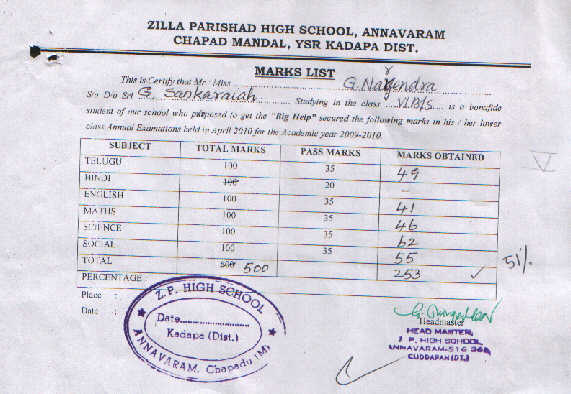 ZILLA PARISHAD HIGH SCHOOL, ANNAVARAM
CHAPAD MANDAL, YSR KADAPA DIST.
MARKS LIST
This is Certify that Mr / Miss G. Nagendra
S/o D/o Sri G. Sankaraiah Studying in the class VI B/s is a bonafide
student of our school who purposed to get the "Big Help" secured the following marks in his / her lower
class Annual Examations held in April 2010 for the Academic year 2009-2010.
SUBJECT TOTAL MARKS PASS MARKS MARKS OBTAINED
TELUGU 100 35 49
HINDI 100 20 -
ENGLISH 100 35 41
MATHS 100 35 46
SCIENCE 100 35 62
SOCIAL 100 35 55
TOTAL 600 500 253 ✓ 51%
PERCENTAGE
V
Place :
Date :
Z.P. HIGH SCHOOL
Date
Kadapa (Dist.)
ANNAVARAM, Chapadu (M)
Headmaster
HEAD MASTER,
Z. P. HIGH SCHOOL,
ANNAVARAM-516 355,
CUDDAPAH (DT.)